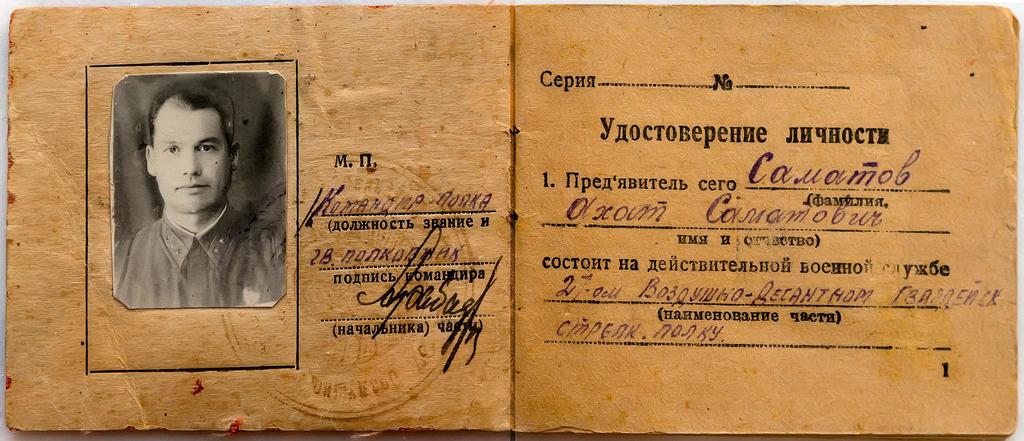 М. П.
Командир полка
(должность звание и
гв. полковник
подпись командира
(начальника) части)
Серия № 
Удостоверение личности
1. Пред'явитель сего Саматов
(фамилия,
Ахат Саматович
имя и отчество)
состоит на действительной военной службе
в Воздушно-Десантном Гвардейск
(наименование части)
стрелк. полку.
1